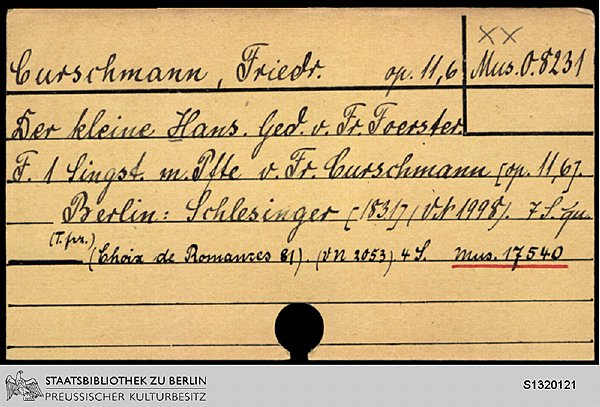 XX
Curschmann, Friedr. op. 11,6 Mus. O. 8231
Der kleine Hans. Ged. v. Fr. Foerster.
F. 1 Singst. m. Pfte v. Fr. Curschmann [op. 11,6].
Berlin: Schlesinger [1831] (VN 1998). 7 S. qu.
(T. frz.)
(Choix de Romances 81). (VN 2053) 4 S. Mus. 17540
STAATSBIBLIOTHEK ZU BERLIN
PREUSSISCHER KULTURBESITZ
S1320121